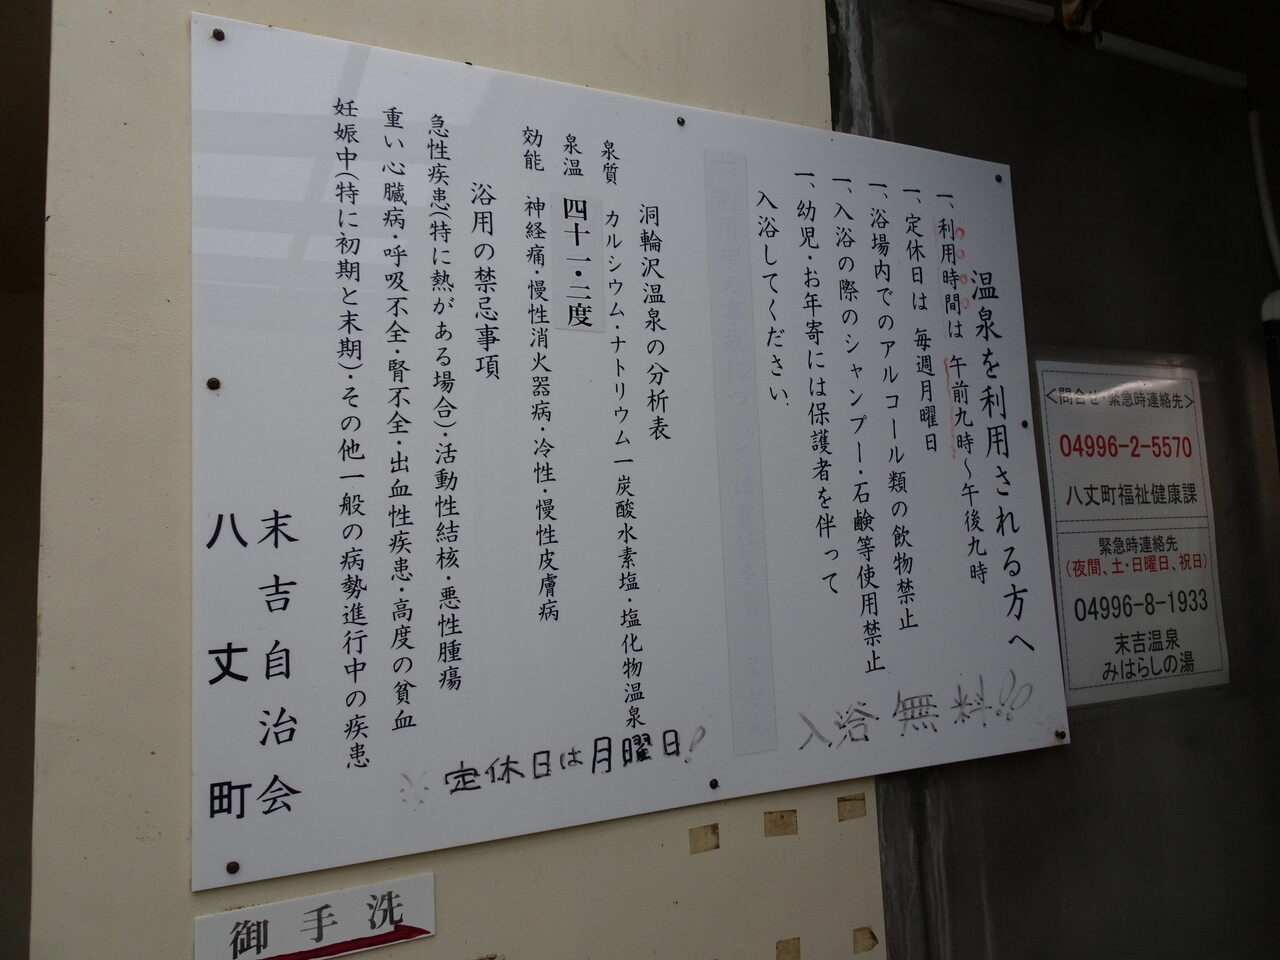 温泉を利用される方へ
一、利用時間は 午前九時～午後九時
一、定休日は 毎週月曜日
一、浴場内でのアルコール類の飲物禁止
一、入浴の際のシャンプー・石鹸等使用禁止
一、幼児・お年寄には保護者を伴って
入浴してください.
入浴無料!!
洞輪沢温泉の分析表
泉質 カルシウム・ナトリウム一炭酸水素塩・塩化物温泉
泉温 四十一・二度
効能 神経痛・慢性消火器病・冷性・慢性皮膚病
浴用の禁忌事項
急性疾患(特に熱がある場合)・活動性結核・悪性腫瘍
重い心臓病・呼吸不全・腎不全・出血性疾患・高度の貧血
妊娠中(特に初期と末期)・その他一般の病勢進行中の疾患
※ 定休日は月曜日!
末吉自治会
八丈町
御手洗
<問合せ・緊急時連絡先>
04996-2-5570
八丈町福祉健康課
緊急時連絡先
(夜間、土・日曜日、祝日)
04996-8-1933
末吉温泉
みはらしの湯